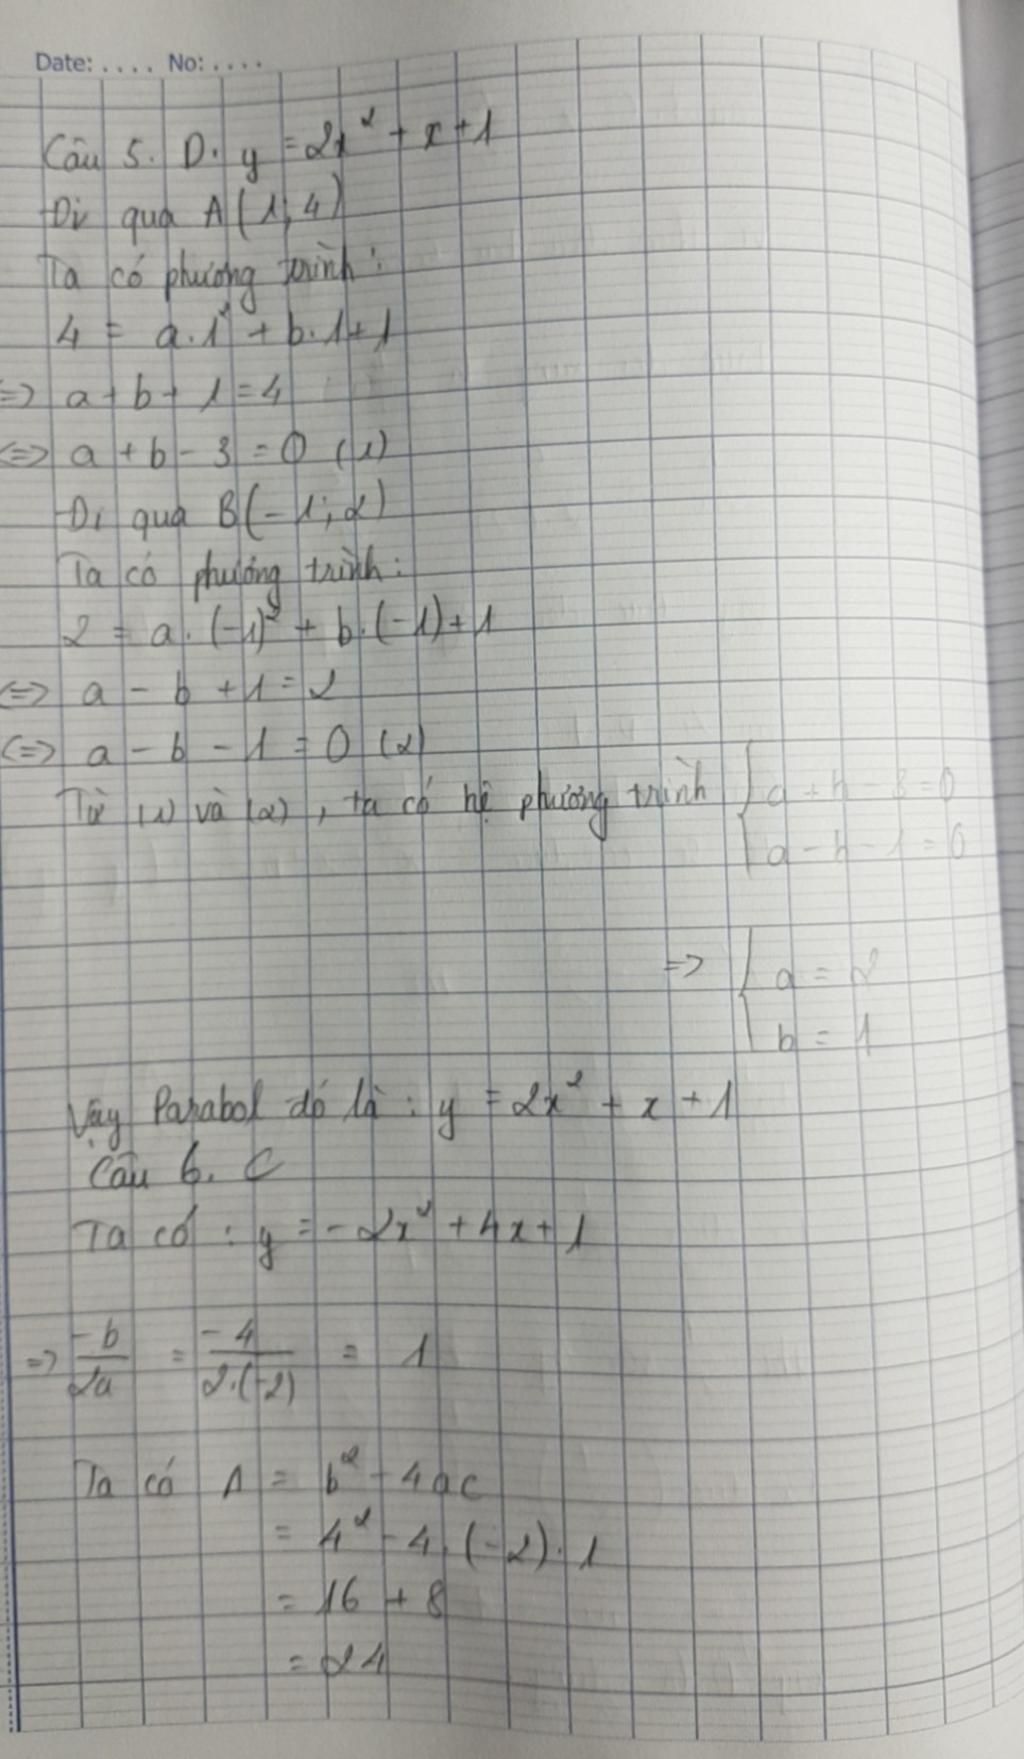 Date: .... No: ....
Câu 5. D. y = 2x² + x + 1
Đi qua A(1; 4)
Ta có phương trình:
4 = a.1² + b.1 + 1
=> a + b + 1 = 4
<=> a + b - 3 = 0 (1)
Đi qua B(-1; 2)
Ta có phương trình:
2 = a.(-1)² + b.(-1) + 1
<=> a - b + 1 = 2
<=> a - b - 1 = 0 (2)
Từ (1) và (2), ta có hệ phương trình { a + b - 3 = 0
a - b - 1 = 0
=> { a = 2
b = 1
Vậy Parabol đó là: y = 2x² + x + 1
Câu 6. C
Ta có: y = -2x² + 4x + 1
=> -b/2a = -4/2.(-2) = 1
Ta có Δ = b² - 4ac
= 4² - 4.(-2).1
= 16 + 8
= 24